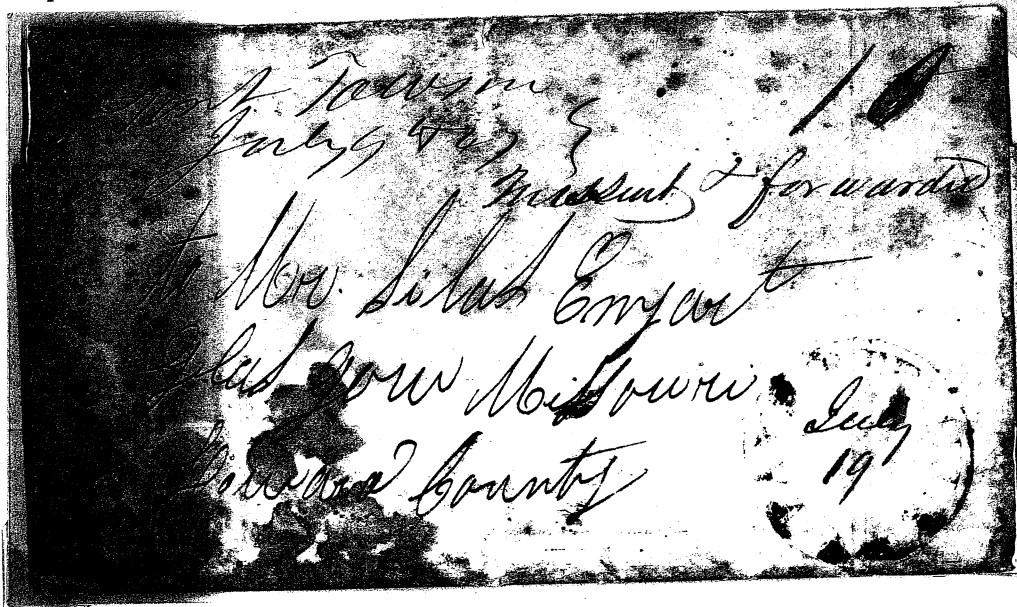 Fort Towson
July 9
10
Missent & forwarded
to Mr. Silas Enyart
Glas gow Missouri
Howard County
July
19